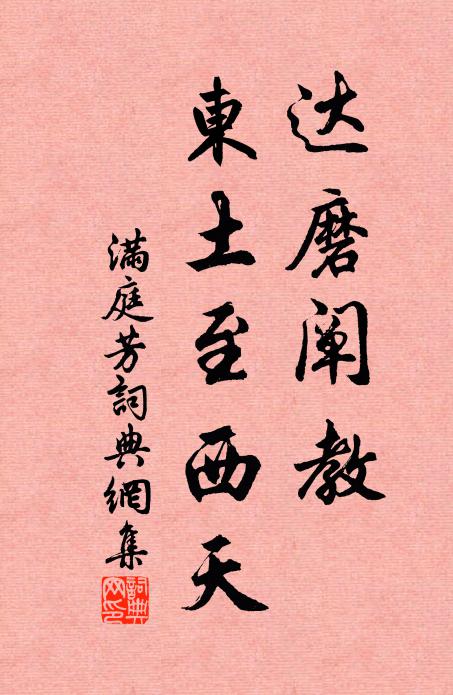 达磨阐教
東土至西天
满庭芳詞典網集
詞典網印